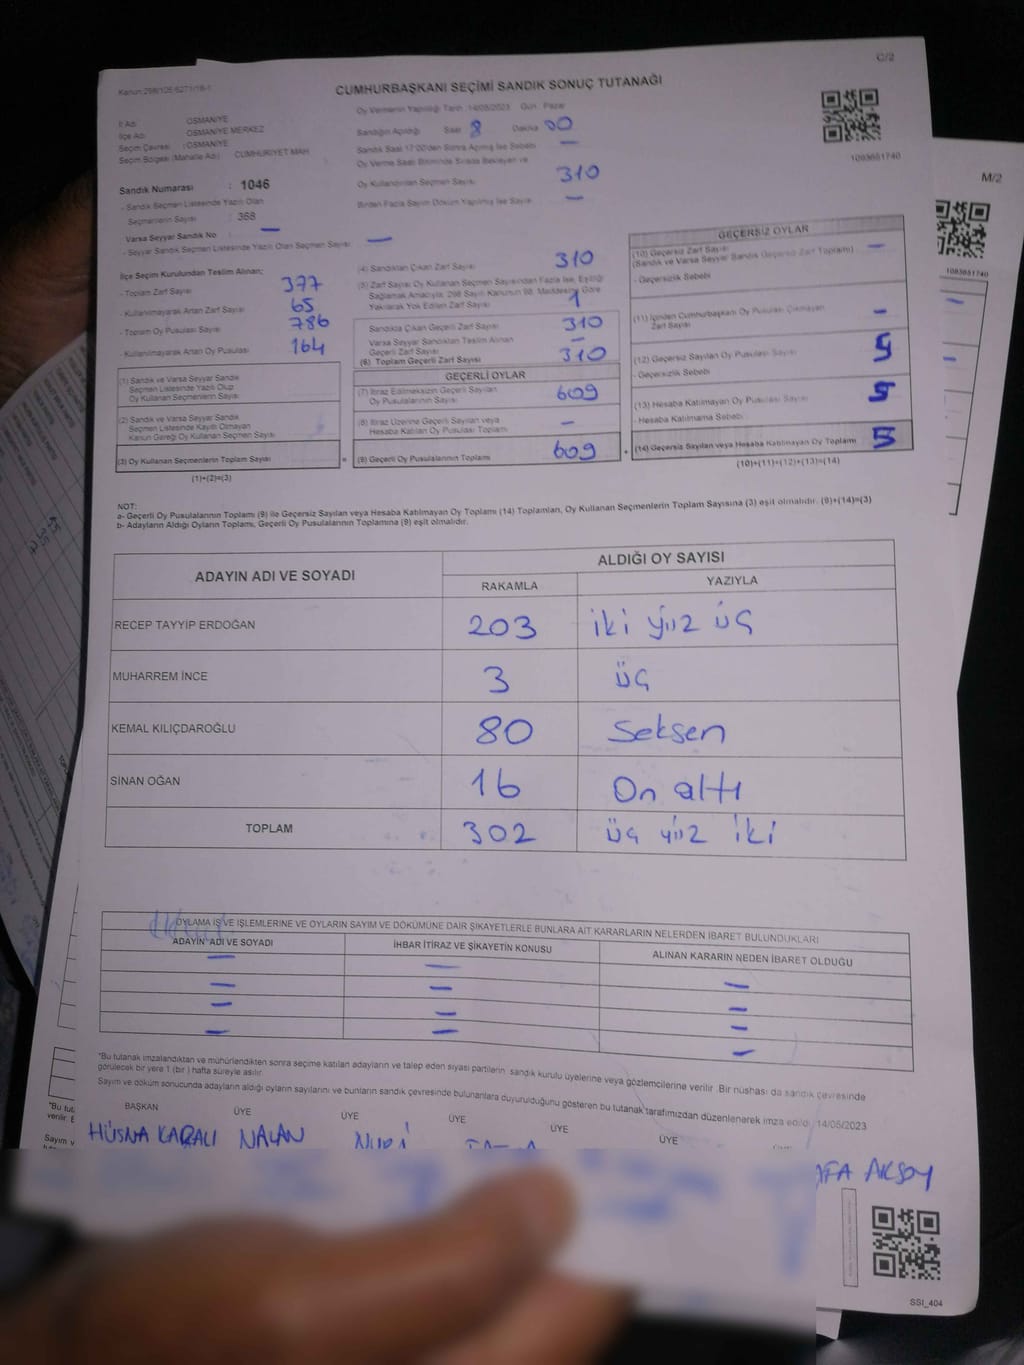 C/2
Kanun:298/105 6271/18-1
CUMHURBAŞKANI SEÇİMİ SANDIK SONUÇ TUTANAĞI
İl Adı : OSMANİYE
İlçe Adı : OSMANİYE MERKEZ
Seçim Çevresi : OSMANİYE
Seçim Bölgesi (Mahalle Adı) : CUMHURİYET MAH.
Sandık Numarası : 1046
- Sandık Seçmen Listesinde Yazılı Olan
Seçmenlerin Sayısı : 368
Varsa Seyyar Sandık No : —
- Seyyar Sandık Seçmen Listesinde Yazılı Olan Seçmen Sayısı : —
Oy Vermenin Yapıldığı Tarih :14/05/2023 Gün : Pazar
Sandığın Açıldığı Saat 8 Dakika 00
Sandık Saat 17:00'den Sonra Açılmış İse Sebebi —
Oy Verme Saati Bitiminde Sırada Bekleyen ve
Oy Kullandırılan Seçmen Sayısı 310
Birden Fazla Sayım Döküm Yapılmış İse Sayısı —
1093651740
İlçe Seçim Kurulundan Teslim Alınan;
- Toplam Zarf Sayısı 377
- Kullanılmayarak Artan Zarf Sayısı 65
- Toplam Oy Pusulası Sayısı 786
- Kullanılmayarak Artan Oy Pusulası 164
(1) Sandık ve Varsa Seyyar Sandık
Seçmen Listesinde Yazılı Olup
Oy Kullanan Seçmenlerin Sayısı
(2) Sandık ve Varsa Seyyar Sandık
Seçmen Listesinde Kayıtlı Olmayan
Kanun Gereği Oy Kullanan Seçmen Sayısı
(3) Oy Kullanan Seçmenlerin Toplam Sayısı
(1)+(2)=(3)
(4) Sandıktan Çıkan Zarf Sayısı 310
(5) Zarf Sayısı Oy Kullanan Seçmen Sayısından Fazla İse, Eşitliği
Sağlamak Amacıyla, 298 Sayılı Kanunun 98. Maddesine Göre
Yakılarak Yok Edilen Zarf Sayısı 1
Sandıkta Çıkan Geçerli Zarf Sayısı 310
Varsa Seyyar Sandıktan Teslim Alınan
Geçerli Zarf Sayısı —
(6) Toplam Geçerli Zarf Sayısı 310
GEÇERLİ OYLAR
(7) İtiraz Edilmeksizin Geçerli Sayılan
Oy Pusulalarının Sayısı 609
(8) İtiraz Üzerine Geçerli Sayılan veya
Hesaba Katılan Oy Pusulası Toplamı —
= (9) Geçerli Oy Pusulalarının Toplamı 609
GEÇERSİZ OYLAR
(10) Geçersiz Zarf Sayısı —
(Sandık ve Varsa Seyyar Sandık Geçersiz Zarf Toplamı)
- Geçersizlik Sebebi
(11) İçinden Cumhurbaşkanı Oy Pusulası Çıkmayan
Zarf Sayısı —
(12) Geçersiz Sayılan Oy Pusulası Sayısı 5
- Geçersizlik Sebebi
(13) Hesaba Katılmayan Oy Pusulası Sayısı 5
- Hesaba Katılmama Sebebi
+ (14) Geçersiz Sayılan veya Hesaba Katılmayan Oy Toplamı 5
(10)+(11)+(12)+(13)=(14)
NOT:
a- Geçerli Oy Pusulalarının Toplamı (9) ile Geçersiz Sayılan veya Hesaba Katılmayan Oy Toplamı (14) Toplamları, Oy Kullanan Seçmenlerin Toplam Sayısına (3) eşit olmalıdır. (9)+(14)=(3)
b- Adayların Aldığı Oyların Toplamı, Geçerli Oy Pusulalarının Toplamına (9) eşit olmalıdır.
ADAYIN ADI VE SOYADI ALDIĞI OY SAYISI
RAKAMLA YAZIYLA
RECEP TAYYİP ERDOĞAN 203 iki yüz üç
MUHARREM İNCE 3 üç
KEMAL KILIÇDAROĞLU 80 Seksen
SİNAN OĞAN 16 On altı
TOPLAM 302 üç yüz iki
OYLAMA İŞ VE İŞLEMLERİNE VE OYLARIN SAYIM VE DÖKÜMÜNE DAİR ŞİKAYETLERLE BUNLARA AİT KARARLARIN NELERDEN İBARET BULUNDUKLARI
ADAYIN ADI VE SOYADI İHBAR İTİRAZ VE ŞİKAYETİN KONUSU ALINAN KARARIN NEDEN İBARET OLDUĞU
— — —
— — —
— — —
— — —
*Bu tutanak imzalandıktan ve mühürlendikten sonra seçime katılan adayların ve talep eden siyasi partilerin sandık kurulu üyelerine veya gözlemcilerine verilir. Bir nüshası da sandık çevresinde
görülecek bir yere 1 (bir) hafta süreyle asılır.
Sayım ve döküm sonucunda adayların aldığı oyların sayılarını ve bunların sandık çevresinde bulunanlara duyurulduğunu gösteren bu tutanak tarafımızdan düzenlenerek imza edildi. 14/05/2023
BAŞKAN ÜYE ÜYE ÜYE ÜYE ÜYE
HÜSNA KARALI NALAN
AKSOY
SSI_404
M/2
1093651740
*Bu tut
verilir. B
Sayım v